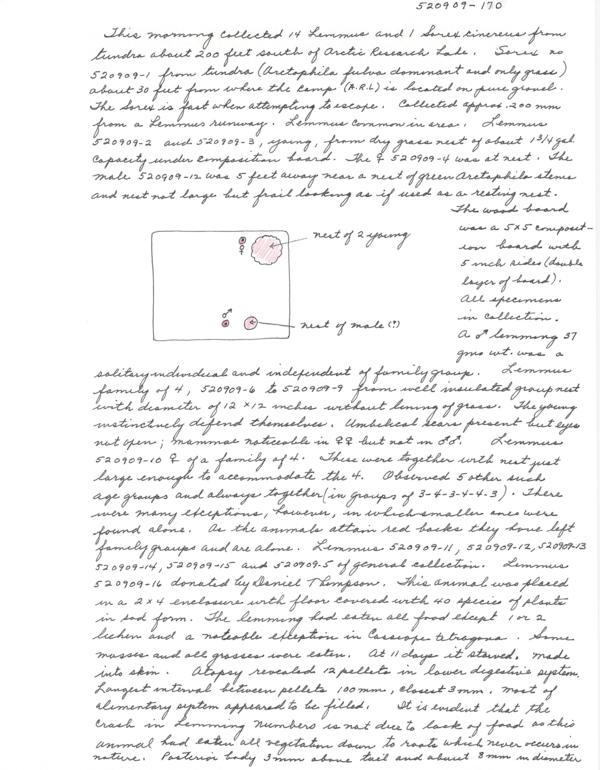 520909-170
This morning collected 14 Lemmus and 1 Sorex cinereus from
tundra about 200 feet south of Arctic Research Lab. Sorex no
520909-1 from tundra (Arctophila fulva dominant and only grass)
about 30 feet from where the camp (A.R.L) is located on pure gravel.
The Sorex is fast when attempting to escape. Collected approx. 200 mm
from a Lemmus runway. Lemmus common in area. Lemmus
520909-2 and 520909-3, young, from dry grass nest of about 1 3/4 gal
capacity under composition board. The ♀ 520909-4 was at nest. The
male 520909-12 was 5 feet away near a nest of green Arctophila stems
and nest not large but frail looking as if used as a resting nest.
The wood board
was a 5x5 composit-
ion board with
5 inch sides (double
layer of board).
All specimens
in collection.
A ♂ lemming 37
gms wt. was a
♀
nest of 2 young
♂
nest of male (?)
solitary individual and independent of family group. Lemmus
family of 4, 520909-6 to 520909-9 from well insulated group nest
with diameter of 12 x 12 inches without lining of grass. The young
instinctively difend themselves. Umbelical scars present but eyes
not open; mammae noticeable in ♀♀ but not in ♂♂. Lemmus
520909-10 ♀ of a family of 4. These were together with nest just
large enough to accommodate the 4. Observed 5 other such
age groups and always together (in groups of 3-4-3-4-4-3). There
were many exceptions, however, in which smaller ones were
found alone. As the animals attain red backs they have left
family groups and are alone. Lemmus 520909-11, 520909-12, 520909-13
520909-14, 520909-15 and 520909-5 of general collection. Lemmus
520909-16 donated by Daniel Thompson. This animal was placed
in a 2x4 enclosure with floor covered with 40 species of plants
in sod form. The lemming had eaten all food except 1 or 2
lichen and a noteable exception in Cassiope tetragona. Some
mosses and all grasses were eaten. At 11 days it starved. Made
into skin. Atopsy revealed 12 pellets in lower digestive system.
Longest interval between pellets 100 mm, closest 3 mm. Most of
alimentary system appeared to be filled. It is evident that the
crash in Lemming numbers is not due to lack of food as this
animal had eaten all vegetation down to roots which never occurs in
nature. Posterior body 3 mm above tail and about 8 mm in diameter